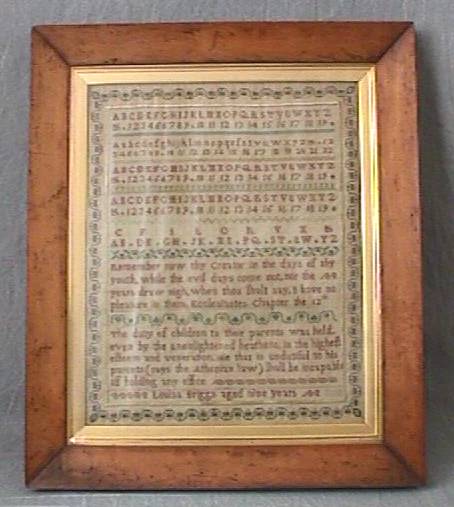 A B C D E F G H I J K L M N O P Q R S T V U W X Y Z
1 2 3 4 5 6 7 8 9 10 11 12 13 14 15 16 17 18 19
a b c d e f g h i j k l m n o p q r s t v u w x y z
A B C D E F G H I J K L M N O P Q R S T V U W X Y Z
1 2 3 4 5 6 7 8 9 10 11 12 13 14 15 16 17 18 19
A B C D E F G H I J K L M N O P Q R S T V U W X Y Z
1 2 3 4 5 6 7 8 9 10 11 12 13 14 15 16 17 18 19
Remember now thy Creator in the days of thy
youth, while the evil days come not, nor the
years draw nigh, when thou shalt say, I have no
pleasure in them. Ecclesiastes Chapter the 12th
The duty of children to their parents was held
even by the unenlightened heathens, in the highest
esteem and veneration. He that is undutiful to his
parents (says the Athenian law) shall be incapable
of holding any office
Louisa Briggs aged nine years